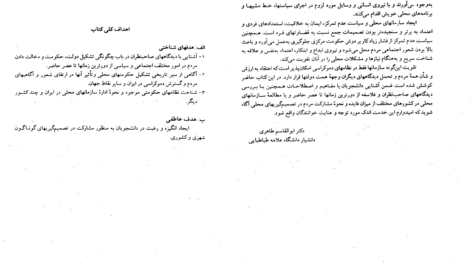 به‌وجود می‌آورند و با نیروی انسانی و وسایل مورد لزوم در اجرای سیاستها، خط مشیها و
برنامه‌های محلی خویش اقدام می‌کنند.
ایجاد سازمانهای محلی و سیاست عدم تمرکز، ایمان به خلاقیت، استعدادهای فردی و
اعتماد به برتر و سنجیده‌تر بودن تصمیمات جمع نسبت به قضاوتهای فرد است. همچنین
سیاست عدم تمرکز از فشار زیاد کار بر دوش حکومت مرکزی جلوگیری به‌عمل می‌آورد و باعث
بالا بردن شعور اجتماعی مردم محل می‌شود و ابتکار، اعتماد به نفس و علاقه به
شناخت سریع و به‌هنگام نیازها و مشکلات محلی را در آنان تقویت می‌کند.
تقویت این‌گونه سازمانها فقط در نظامهای دموکراسی امکان‌پذیر است که اعتقاد به ارزش
و شأن همهٔ مردم و تحمل دیدگاههای دیگران وجههٔ همت دولتها قرار دارد. در این کتاب حاضر
کوشش شده است ضمن آشنایی دانشجویان با مفاهیم و اصطلاحات همچنین با بررسی
دیدگاههای صاحب‌نظران و فلاسفه از دورترین زمانها تا عصر حاضر و با مطالعهٔ سازمانهای
محلی در کشورهای مختلف از میزان فایده و نحوهٔ مشارکت مردم در تصمیم‌گیریهای محلی آگاه
شوند که امیدوارم این خدمت اندک مورد توجه و عنایت خوانندگان واقع شود.
دکتر ابوالقاسم طاهری
دانشیار دانشگاه علامه طباطبایی
اهداف کلی کتاب
الف: هدفهای شناختی
۱- آشنایی با دیدگاههای صاحبنظران در باب چگونگی تشکیل دولت، حکومت و دخالت دادن
مردم در امور مختلف اجتماعی و سیاسی از دورترین زمانها تا عصر حاضر.
۲- آگاهی از سیر تاریخی تشکیل حکومتهای محلی و تأثیر آنها در ارتقای شعور و آگاهیهای
مردم و گسترش دموکراسی در ایران و سایر نقاط جهان.
۳- شناخت نظامهای حکومتی موجود و نحوهٔ ادارهٔ سازمانهای محلی در ایران و چند کشور
دیگر.
ب: هدف عاطفی
ایجاد انگیزه و رغبت در دانشجویان به منظور مشارکت در تصمیم‌گیریهای گوناگون
شهری و کشوری.